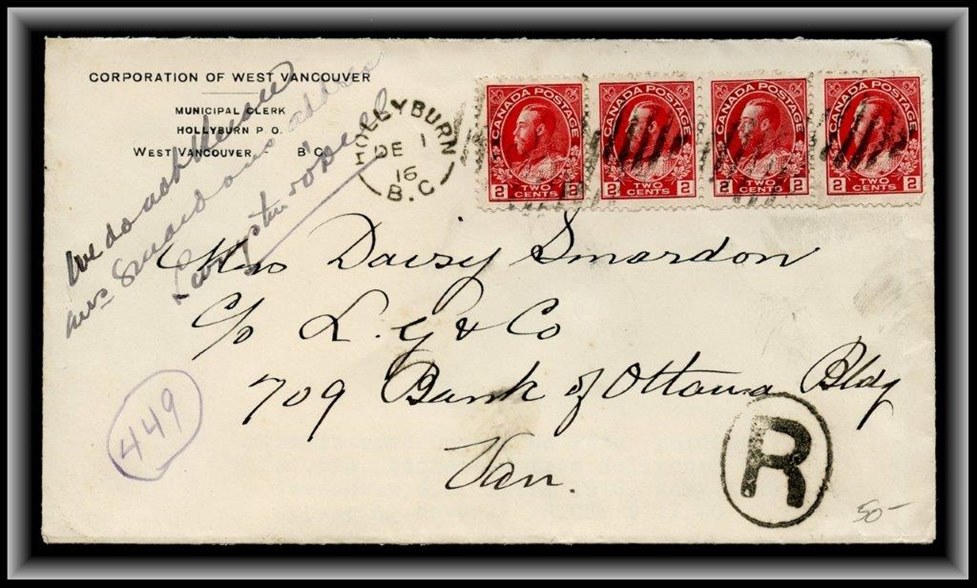 CORPORATION OF WEST VANCOUVER
MUNICIPAL CLERK
HOLLYBURN P.O.
WEST VANCOUVER, B.C.
HOLLYBURN
DE 1
16
B.C
CANADA POSTAGE
2 TWO CENTS 2
CANADA POSTAGE
2 TWO CENTS 2
CANADA POSTAGE
2 TWO CENTS 2
CANADA POSTAGE
2 TWO CENTS 2
We do not know
Mrs Smardons address
Miss Daisy Smardon
c/o L. G & Co
709 Bank of Ottawa Bldg
Van.
449
R
50-